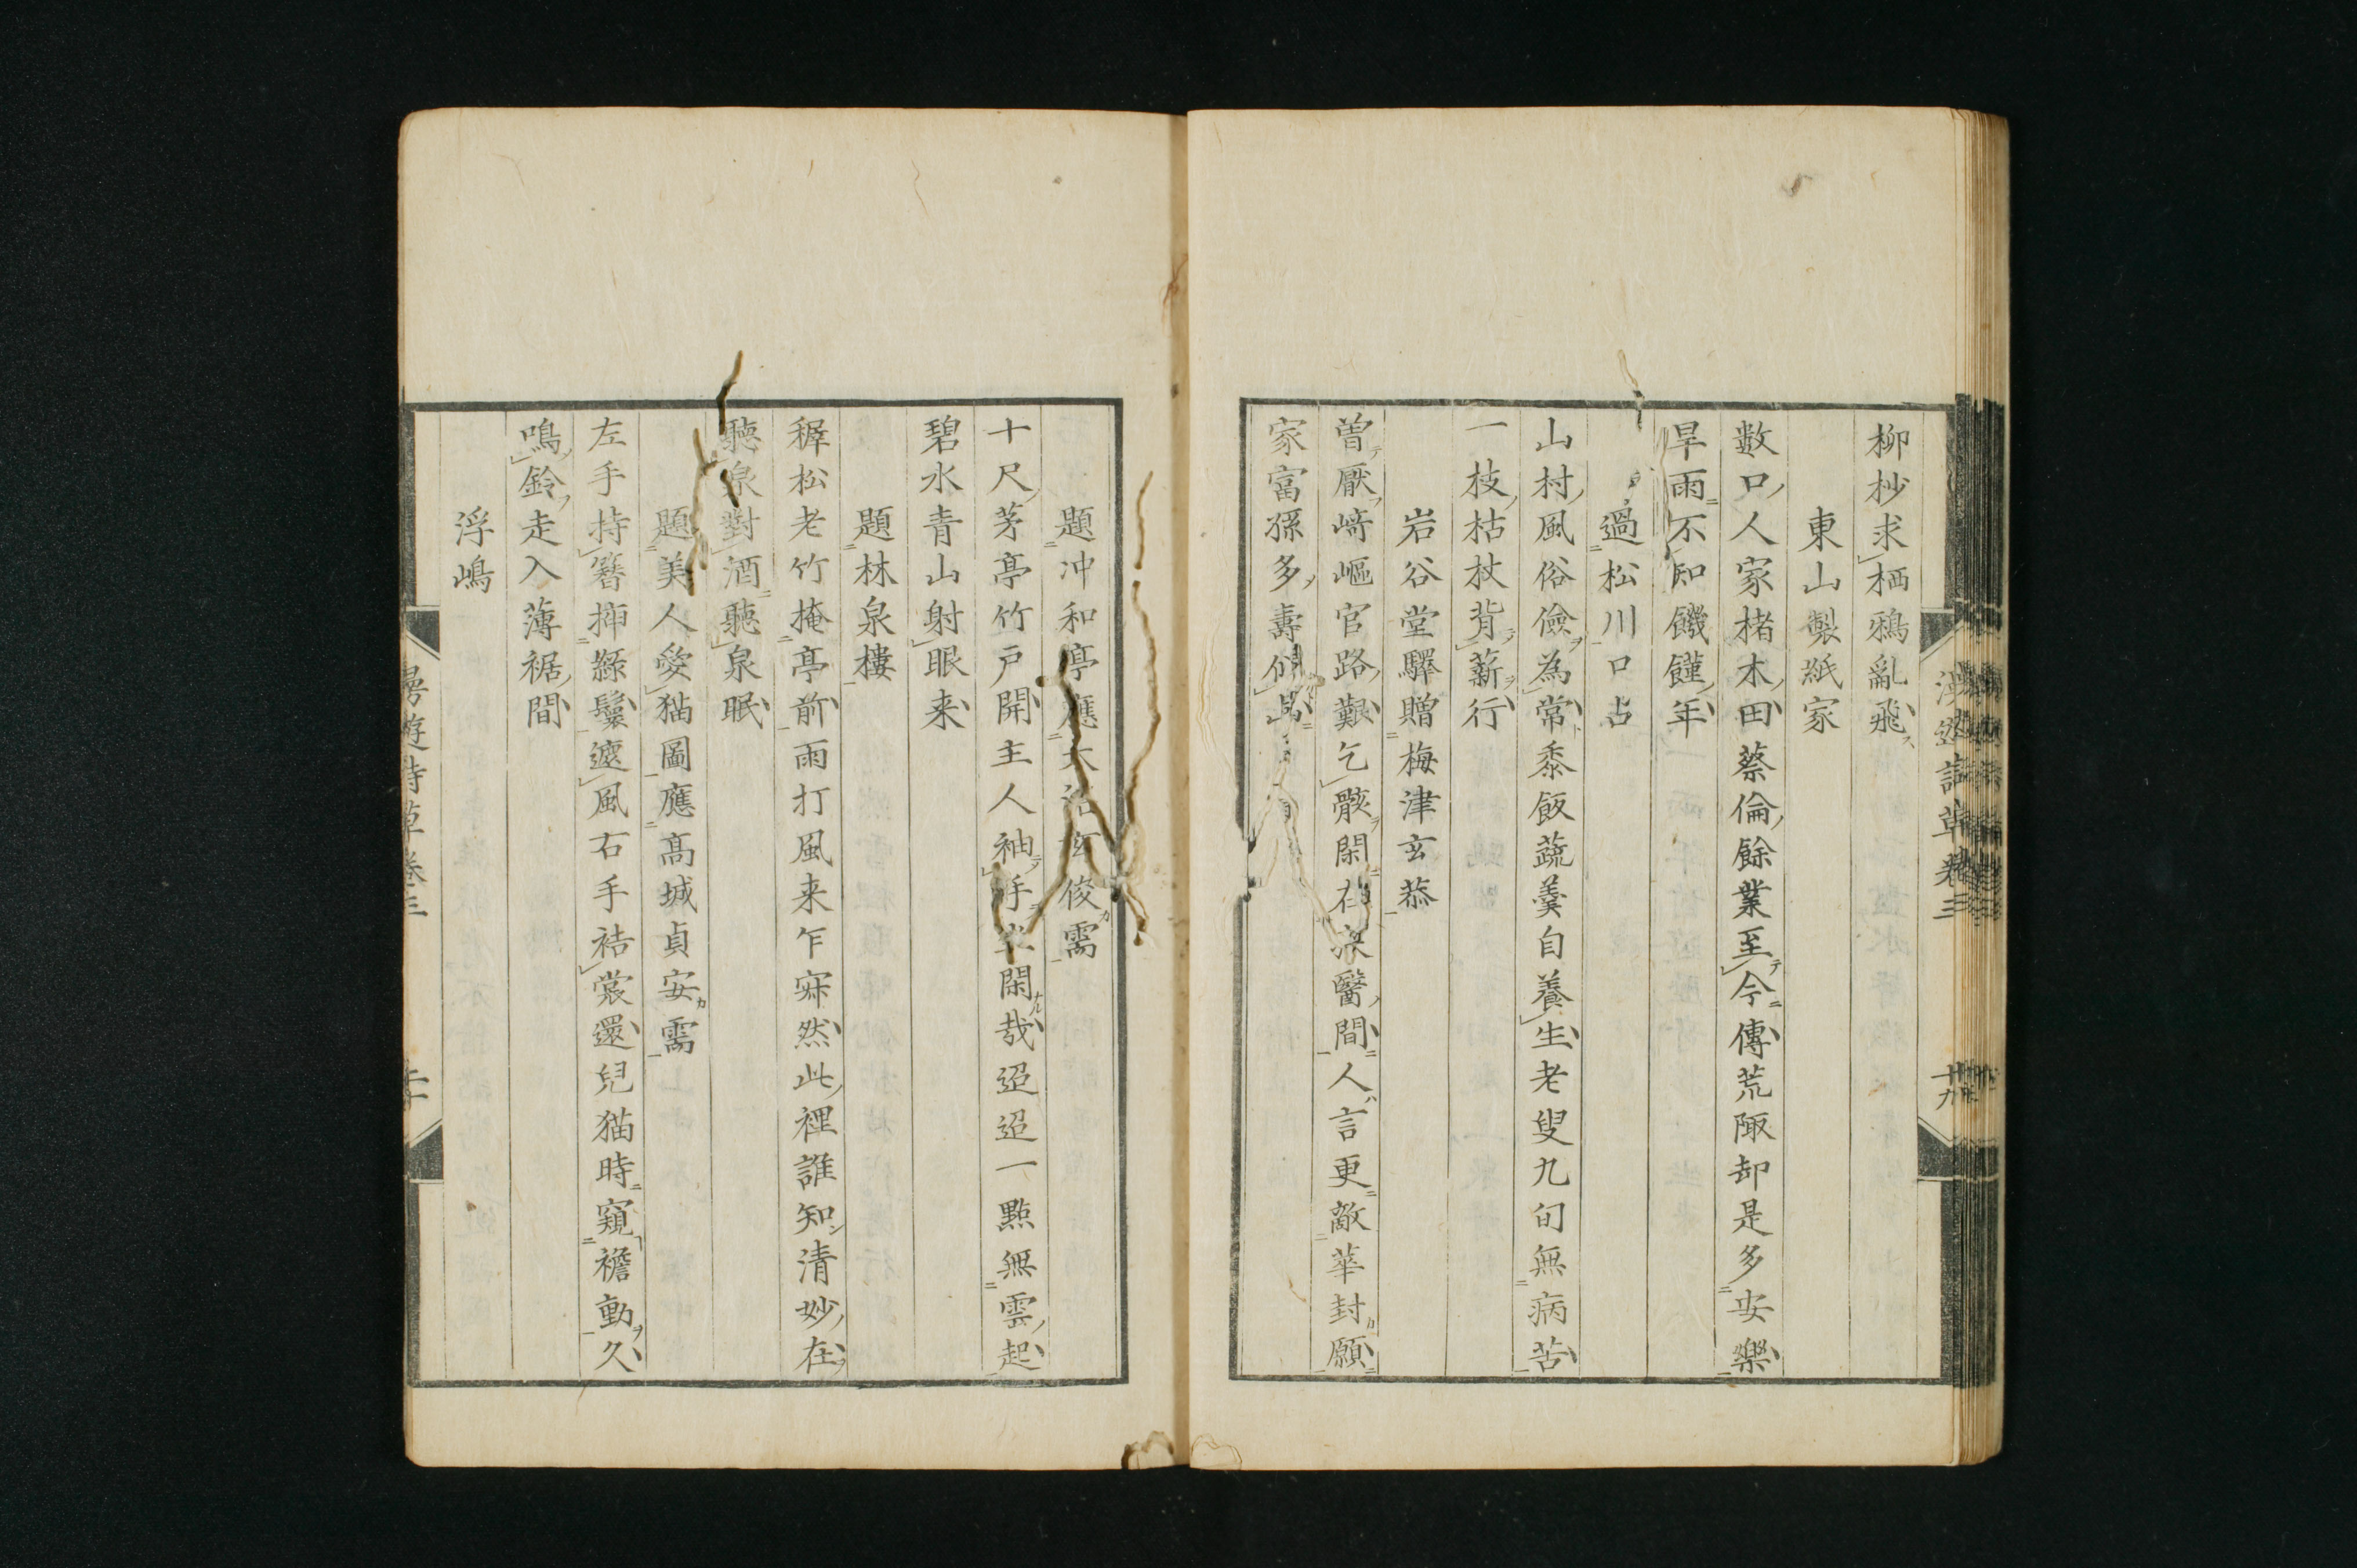 柳杪求栖鴉亂飛
東山製紙家
數口人家楮木田蔡倫餘業至今傳荒陬却是多安樂
旱雨不知饑饉年
過松川口占
山村風俗儉為常黍飯蔬羹自養生老叟九旬無病苦
一枝枯杖背薪行
岩谷堂驛贈梅津玄恭
曽厭﨑嶇官路艱乞骸閑在醫間人言更敵華封願
家富孫多壽
漫遊詩草卷三
十九
題冲和亭應大玄俊需
十尺茅亭竹戸開主人袖手閑哉迢迢一點無雲起
碧水青山射眼来
題林泉樓
穉松老竹掩亭前雨打風来乍寐然此裡誰知清妙在
聽泉對酒聽泉眠
題美人愛猫圖應髙城貞安需
左手持簪挿綠鬟遮風右手袺裳還兒猫時窺襜動久
鳴鈴走入薄裾間
浮嶋
漫遊詩草卷三
二十